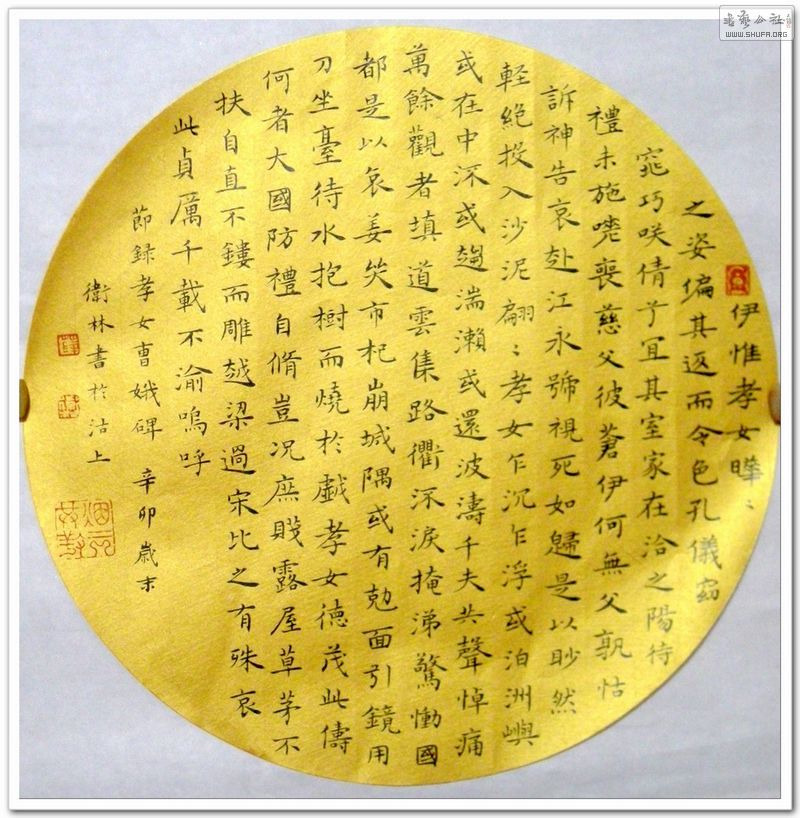 伊惟孝女曄〻
之姿偏其返而令色孔儀窈
窕巧咲倩兮宜其室家在洽之陽待
禮未施嗟喪慈父彼蒼伊何無父孰怙
訴神告哀赴江永號視死如歸是以眇然
輕絕投入沙泥翩〻孝女乍沉乍浮或泊洲嶼
或在中流或趨湍瀨或還波濤千夫共聲悼痛
萬餘觀者填道雲集路衢流淚掩涕驚慟國
都是以哀姜哭市杞崩城隅或有勊面引鏡用
刀坐臺待水抱樹而燒於戲孝女德茂此儔
何者大國防禮自脩豈況庶賤露屋草茅不
扶自直不鏤而雕越梁過宋比之有殊哀
此貞厲千載不渝嗚呼
節録孝女曹娥碑 辛卯歲末
衛林書於沽上
書藝公社
WWW.SHUFA.ORG